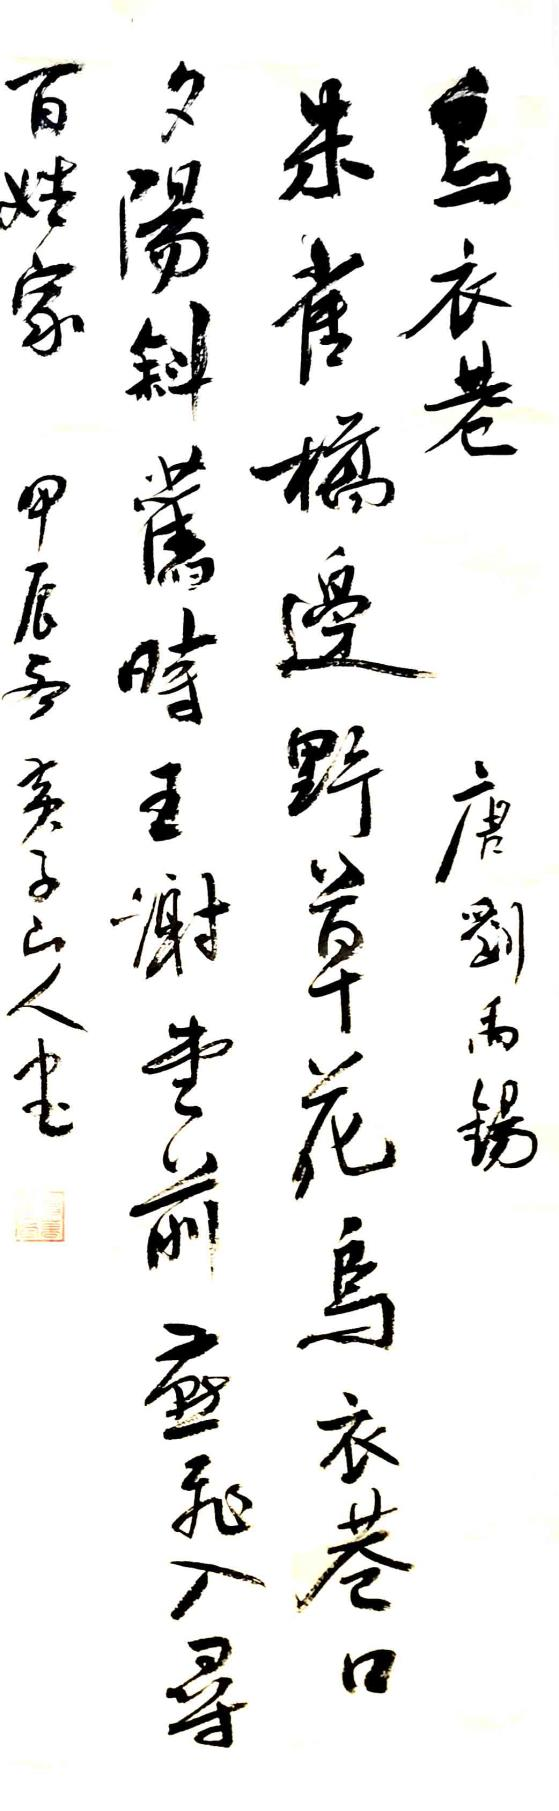 烏衣巷 唐劉禹錫
朱雀橋邊野草花烏衣巷口
夕陽斜舊時王謝堂前燕飛入尋
百姓家 甲辰 黃子山人書